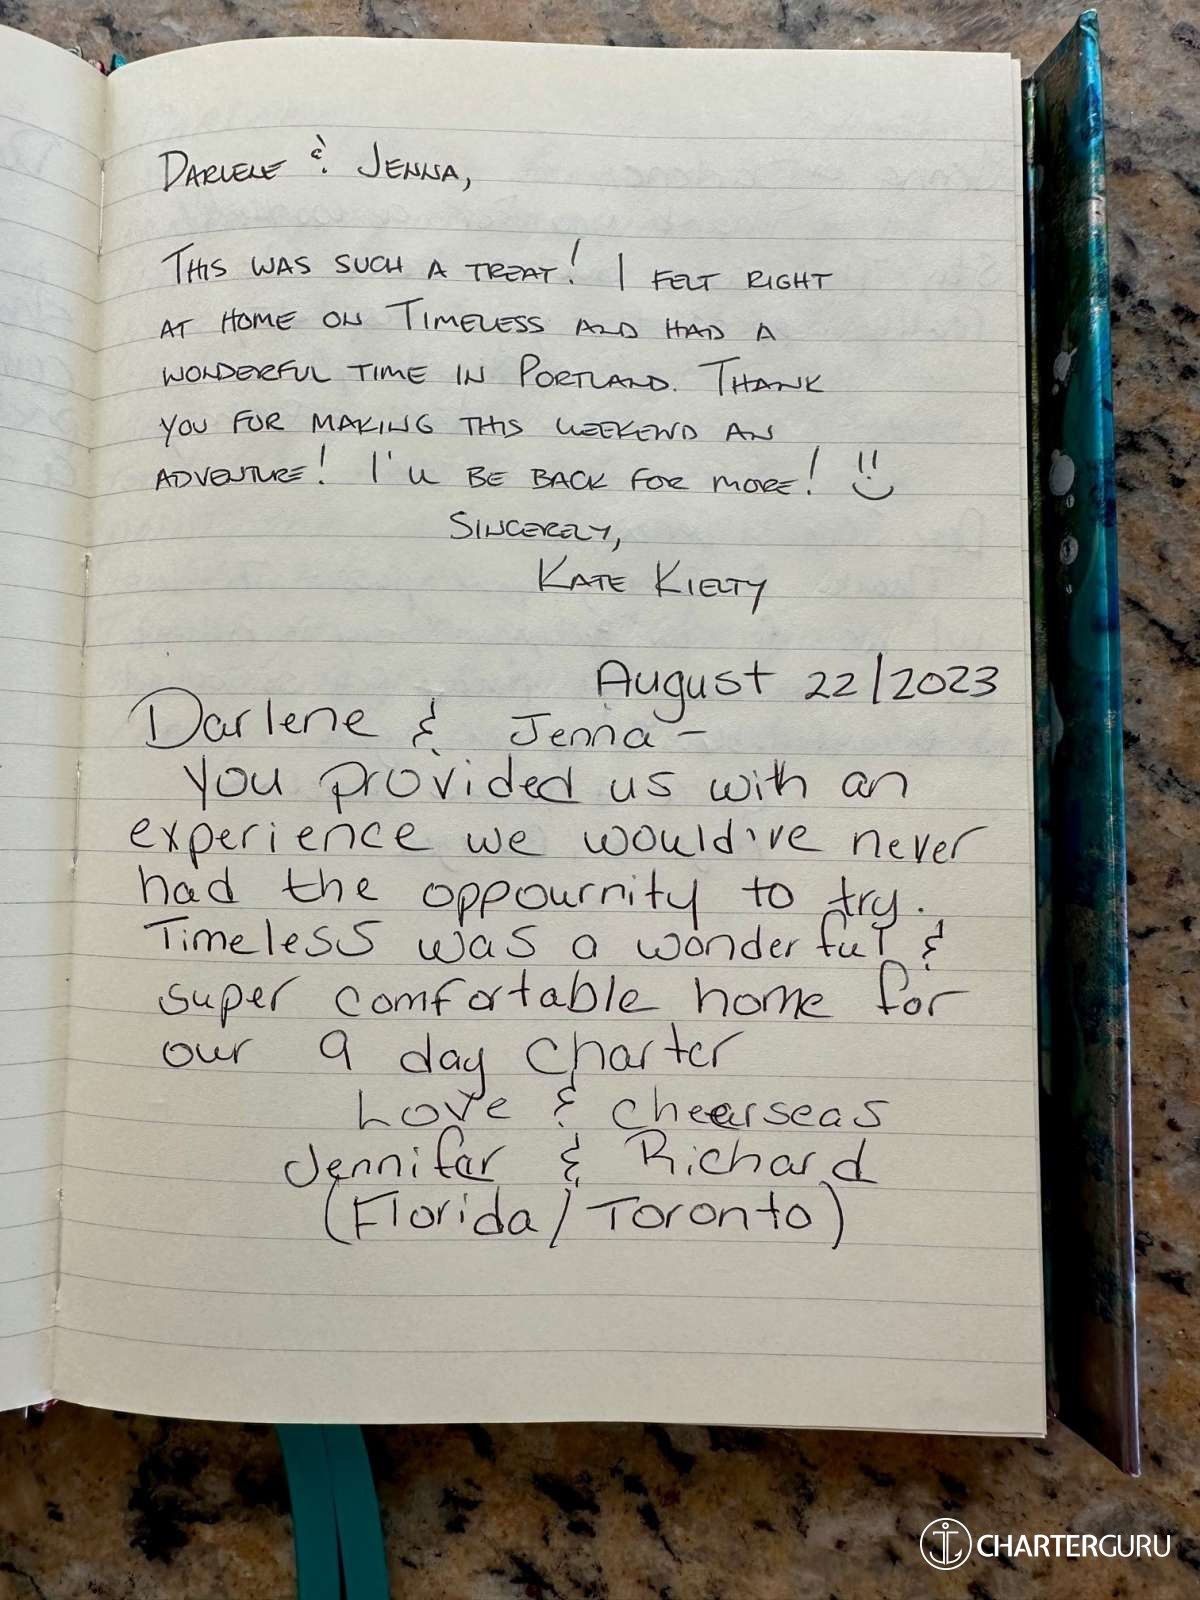 DARLENE & JENNA,
THIS WAS SUCH A TREAT! I FELT RIGHT
AT HOME ON TIMELESS AND HAD A
WONDERFUL TIME IN PORTLAND. THANK
YOU FOR MAKING THIS WEEKEND AN
ADVENTURE! I'LL BE BACK FOR MORE!
SINCERELY,
KATE KIELTY
August 22/2023
Darlene & Jenna -
You provided us with an
experience we would've never
had the oppournity to try.
Timeless was a wonderful &
super comfortable home for
our 9 day charter
Love & cheerseas
Jennifer & Richard
(Florida/Toronto)
CHARTERGURU